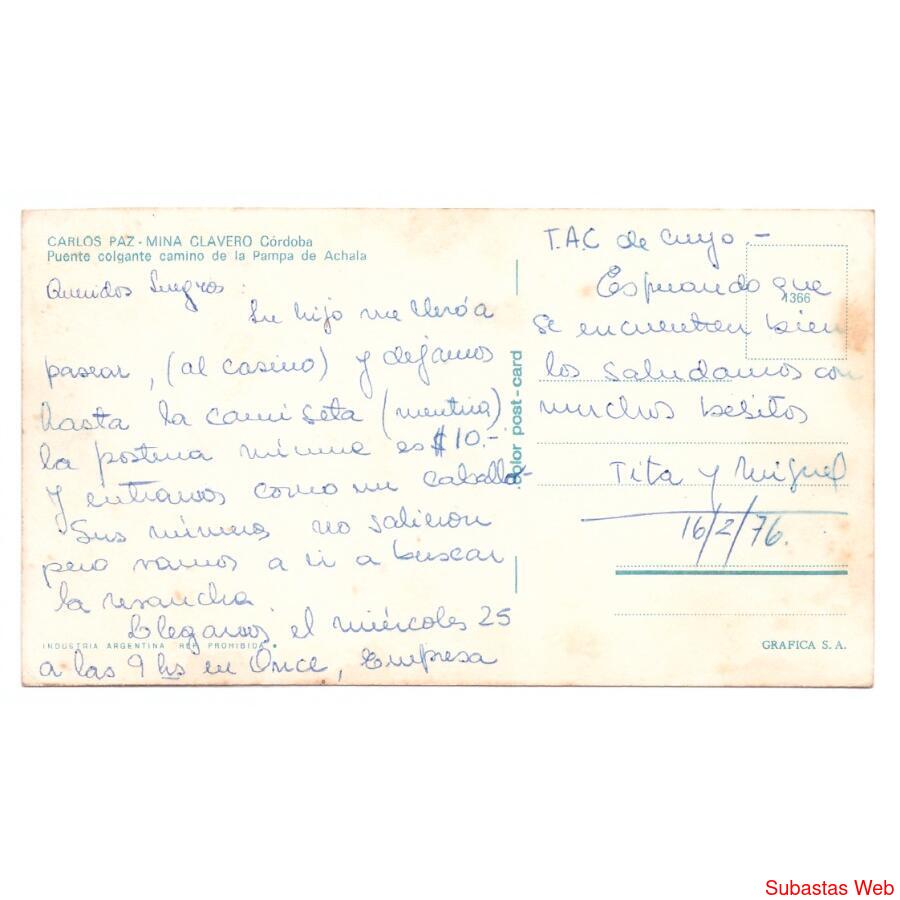 CARLOS PAZ - MINA CLAVERO Córdoba
Puente colgante camino de la Pampa de Achala
Queridos Suegros:
Su hijo me llevó a
pasear, (al casino) y dejamos
hasta la camiseta (mentira)
la postura mínima es $10.-
Y entramos como un caballo-
Sus números no salieron
pero vamos a ir a buscar
la revancha.
Llegamos el miércoles 25
INDUSTRIA ARGENTINA REP. PROHIBIDA
a las 9 hs en Once, Empresa
color post-card
T.A.C de cuyo -
1366
Esperando que
se encuentren bien
los saludamos con
muchos besitos
Tita y Miguel
16/2/76.
GRAFICA S.A.
Subastas Web